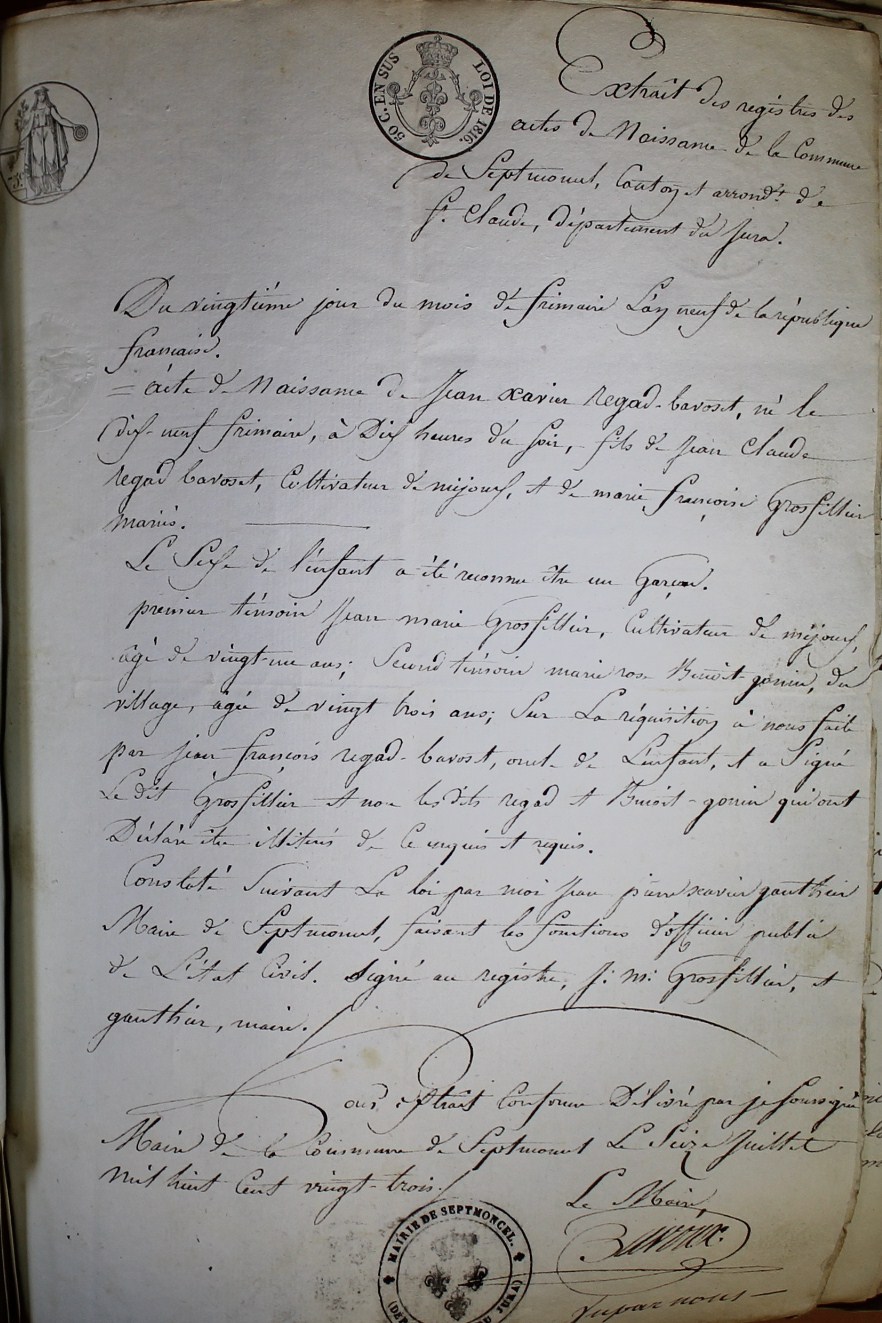 50 C. EN SUS LOI DE 1816.
Extrait des registres des
actes de Naissance de la Commune
de Septmoncel, Canton et arrondt. de
St. Claude, département du Jura.
Du vingtième jour du mois de frimaire L'an neuf de la république
francaise.
= acte de Naissance de Jean xavier regad-bavoset, né le
dix-neuf frimaire, à Dix heures du soir, fils de Jean Claude
regad bavoset, Cultivateur de mijoux, et de marie françoise Grosfillier
mariés.
Le Sexe de l'enfant a été reconnu être un Garçon.
premier témoin Jean marie Grosfillier, Cultivateur de mijoux,
âgé de vingt-un ans; Second témoin marie rose Benoit-gonin, du
village, agée de vingt trois ans; Sur La réquisition à nous faite
par jean françois regad-bavoset, oncle de L'enfant, et a Signé
Le dit Grosfillier et non les dits regad et Benoit-gonin qui ont
Déclaré être illitérés de ce enquis et requis.
Constaté Suivant La loi par moi Jean pierre xavier gauthier
Maire de Septmoncel, faisant les fonctions d'officier public
de L'état Civil. Signé au registre, J: M: Grosfillier, et
gauthier, maire.
Pour extrait Conforme Délivré par je soussigné
Maire de la Commune de Septmoncel Le Seize Juillet
mil huit Cent vingt-trois.
Le Maire,
MAIRIE DE SEPTMONCEL.
JURA)
Vu par nous